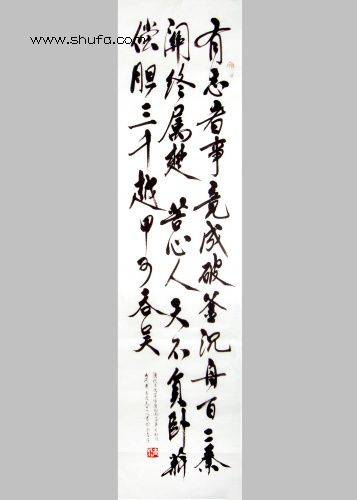 www.shufa.com
有志者事竟成破釜沉舟百二秦
關终属楚苦心人天不負卧薪
偿胆三千越甲可吞吴